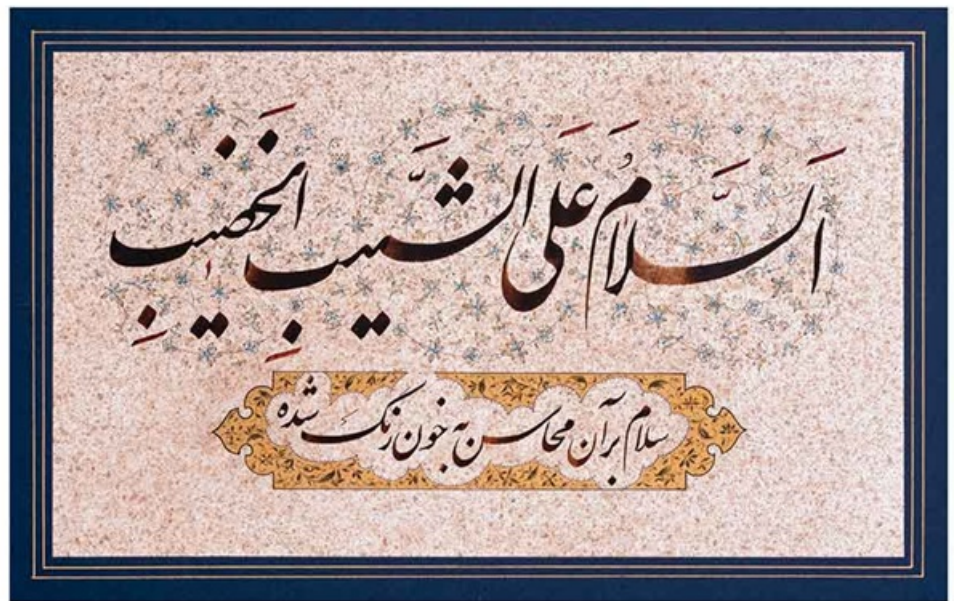 اَلسَّلامُ عَلَی الشَّیبِ الخَضیبِ
سلام بر آن محاسن به خون رنگ شده